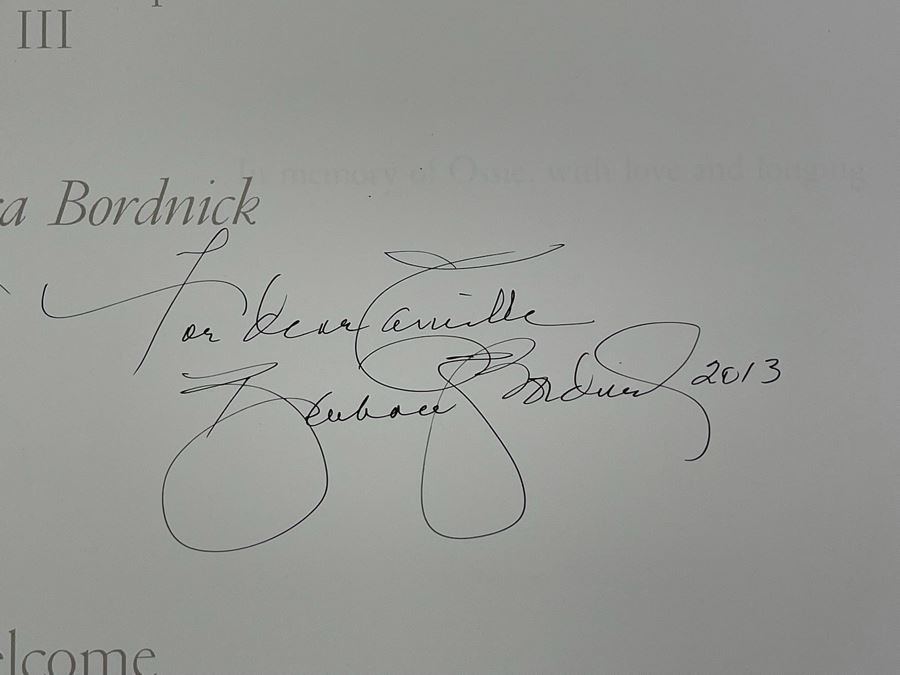 III
In memory of Ossie, with love and longing
a Bordnick
For dear Camille
Bordnick 2013
elcome